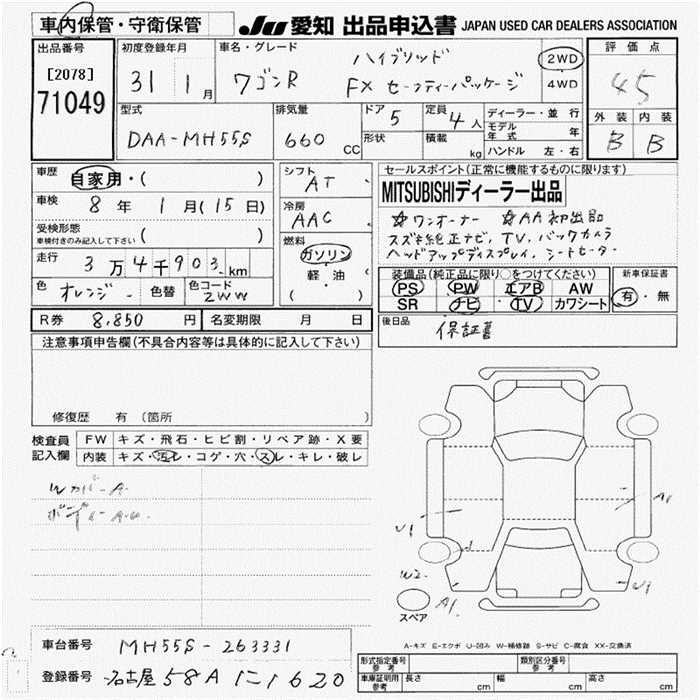 車内保管・守衛保管
JU 愛知 出品申込書 JAPAN USED CAR DEALERS ASSOCIATION
出品番号
[2078]
71049
初度登録年月
31 1月
車名・グレード
ワゴンR
ハイブリッド
FX セーフティーパッケージ
2WD
4WD
評価点
4.5
外装 内装
B B
型式
DAA-MH55S
排気量
660 CC
ドア 5
形状
定員 4人
積載 kg
ディーラー・並行
モデル年式 年
ハンドル 左・右
車歴 自家用・( )
車検 8年 1月(15日)
受検形態
車検付きのみ記入して下さい ( )
走行 3万4千903 km
色 オレンジ
色替
色コード
ZWW
シフト
AT
冷房
AAC
燃料
ガソリン
軽・油
( )
セールスポイント(正常に機能するものに限ります)
MITSUBISHIディーラー出品
☆ワンオーナー ☆AA初出品
スズキ純正ナビ、TV、バックカメラ
ヘッドアップディスプレイ、シートヒーター
装備品(純正品に限り○をつけてください)
PS PW エアB AW
SR ナビ TV カワシート
新車保証書
有・無
R券 8,850円
名変期限 月 日
後日品
保証書
注意事項申告欄(不具合内容等は具体的に記入して下さい)
修復歴 有(箇所 )
検査員記入欄
FW キズ・飛石・ヒビ割・リペア跡・X要
内装 キズ・汚レ・コゲ・穴・スレ・キレ・破レ
Wカバー A
A1
U1
W2
A1
スペア
A-キズ E-エクボ U-凹み W-補修跡 S-サビ C-腐食 XX-交換済
車台番号 MH55S-263331
登録番号 名古屋 58A に1620
形式指定番号
参考
類別区分番号
参考
車庫証明用
参考
長さ cm
幅 cm
高さ cm